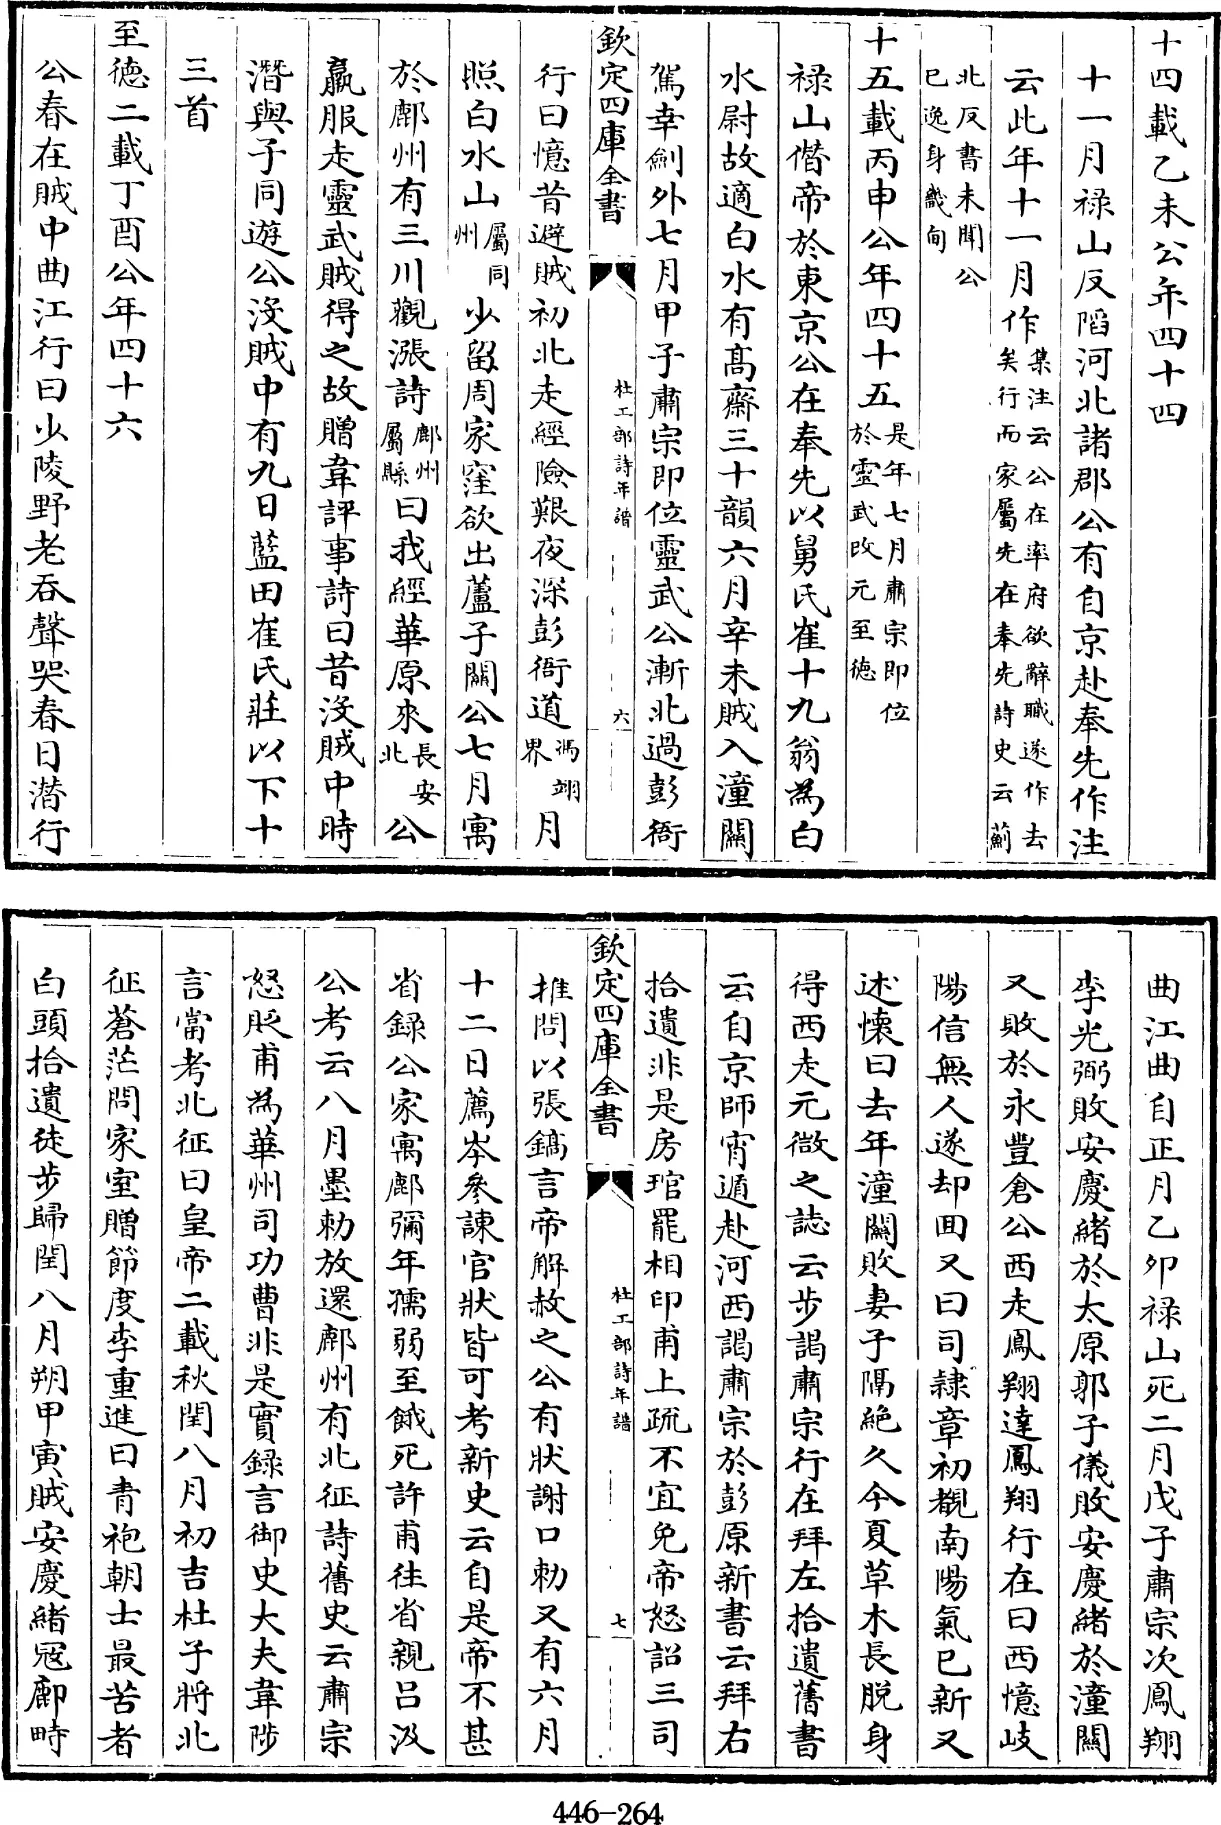 十四載乙未公年四十四
十一月禄山反陷河北諸郡公有自京赴奉先作注
云此年十一月作集注云公在率府欲辭職遂作去矣行而家屬先在奉先詩史云薊
北反書未聞公已逸身畿甸
十五載丙申公年四十五是年七月肅宗即位於靈武改元至德
禄山僭帝於東京公在奉先以舅氏崔十九翁為白
水尉故適白水有髙齋三十韻六月辛未賊入潼關
駕幸劍外七月甲子肅宗即位靈武公漸北過彭衙
欽定四庫全書 杜工部詩年譜 六
行曰憶昔避賊初北走經險艱夜深彭衙道馮翊界月
照白水山屬同州少留周家窪欲出蘆子關公七月寓
於鄜州有三川觀漲詩鄜州屬縣曰我經華原來長安北公
羸服走靈武賊得之故贈韋評事詩曰昔没賊中時
潛與子同遊公没賊中有九日藍田崔氏莊以下十
三首
至德二載丁酉公年四十六
公春在賊中曲江行曰少陵野老吞聲哭春日潛行
曲江曲自正月乙卯禄山死二月戊子肅宗次鳳翔
李光弼敗安慶緒於太原郭子儀敗安慶緒於潼關
又敗於永豐倉公西走鳳翔達鳳翔行在曰西憶岐
陽信無人遂却回又曰司隷章初覩南陽氣已新又
述懷曰去年潼關敗妻子隔絶久今夏草木長脱身
得西走元微之誌云步謁肅宗行在拜左拾遺舊書
云自京師宵遁赴河西謁肅宗於彭原新書云拜右
拾遺非是房琯罷相印甫上疏不宜免帝怒詔三司
欽定四庫全書 杜工部詩年譜 七
推問以張鎬言帝解赦之公有狀謝口勅又有六月
十二日薦岑參諫官狀皆可考新史云自是帝不甚
省録公家寓鄜彌年孺弱至餓死許甫往省親吕汲
公考云八月墨勅放還鄜州有北征詩舊史云肅宗
怒貶甫為華州司功曹非是實録言御史大夫韋陟
言當考北征曰皇帝二載秋閏八月初吉杜子將北
征蒼茫問家室贈節度李重進曰青袍朝士最苦者
白頭拾遺徒步歸閏八月朔甲寅賊安慶緒冦鄜畤
446-264